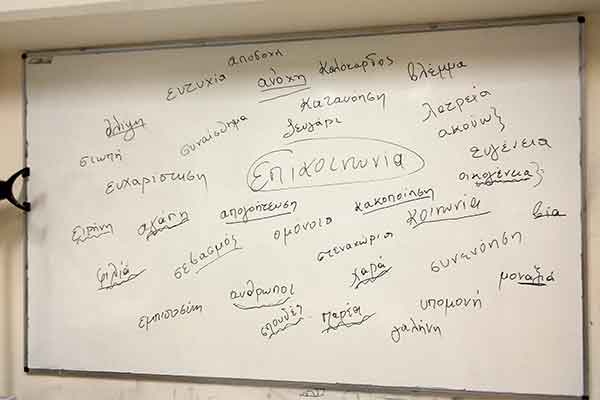 αποδοχή
ευτυχία ανοχή καλόκαρδος βλέμμα
θλίψη συναίσθημα κατανόηση λατρεία
σιωπή ζευγάρι ακούω
ευχαρίστηση επικοινωνία ευγένεια
οικογένεια
ειρήνη αγάπη απογοήτευση κακοποίηση κοινωνία βία
φιλία σεβασμός ομόνοια στεναχώρια συνενόηση
εμπιστοσύνη άνθρωποι χαρά μοναξιά
σπουδές παρέα υπομονή
γαλήνη